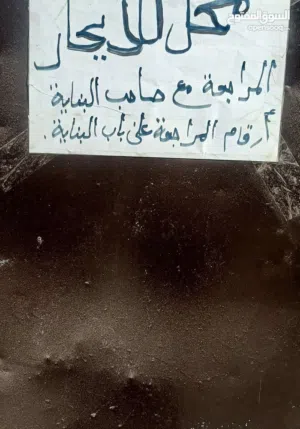 السوق المفتوح
opensooq
محل للايجار
المراجعة مع صاحب البناية
أرقام المراجعة على باب البناية.